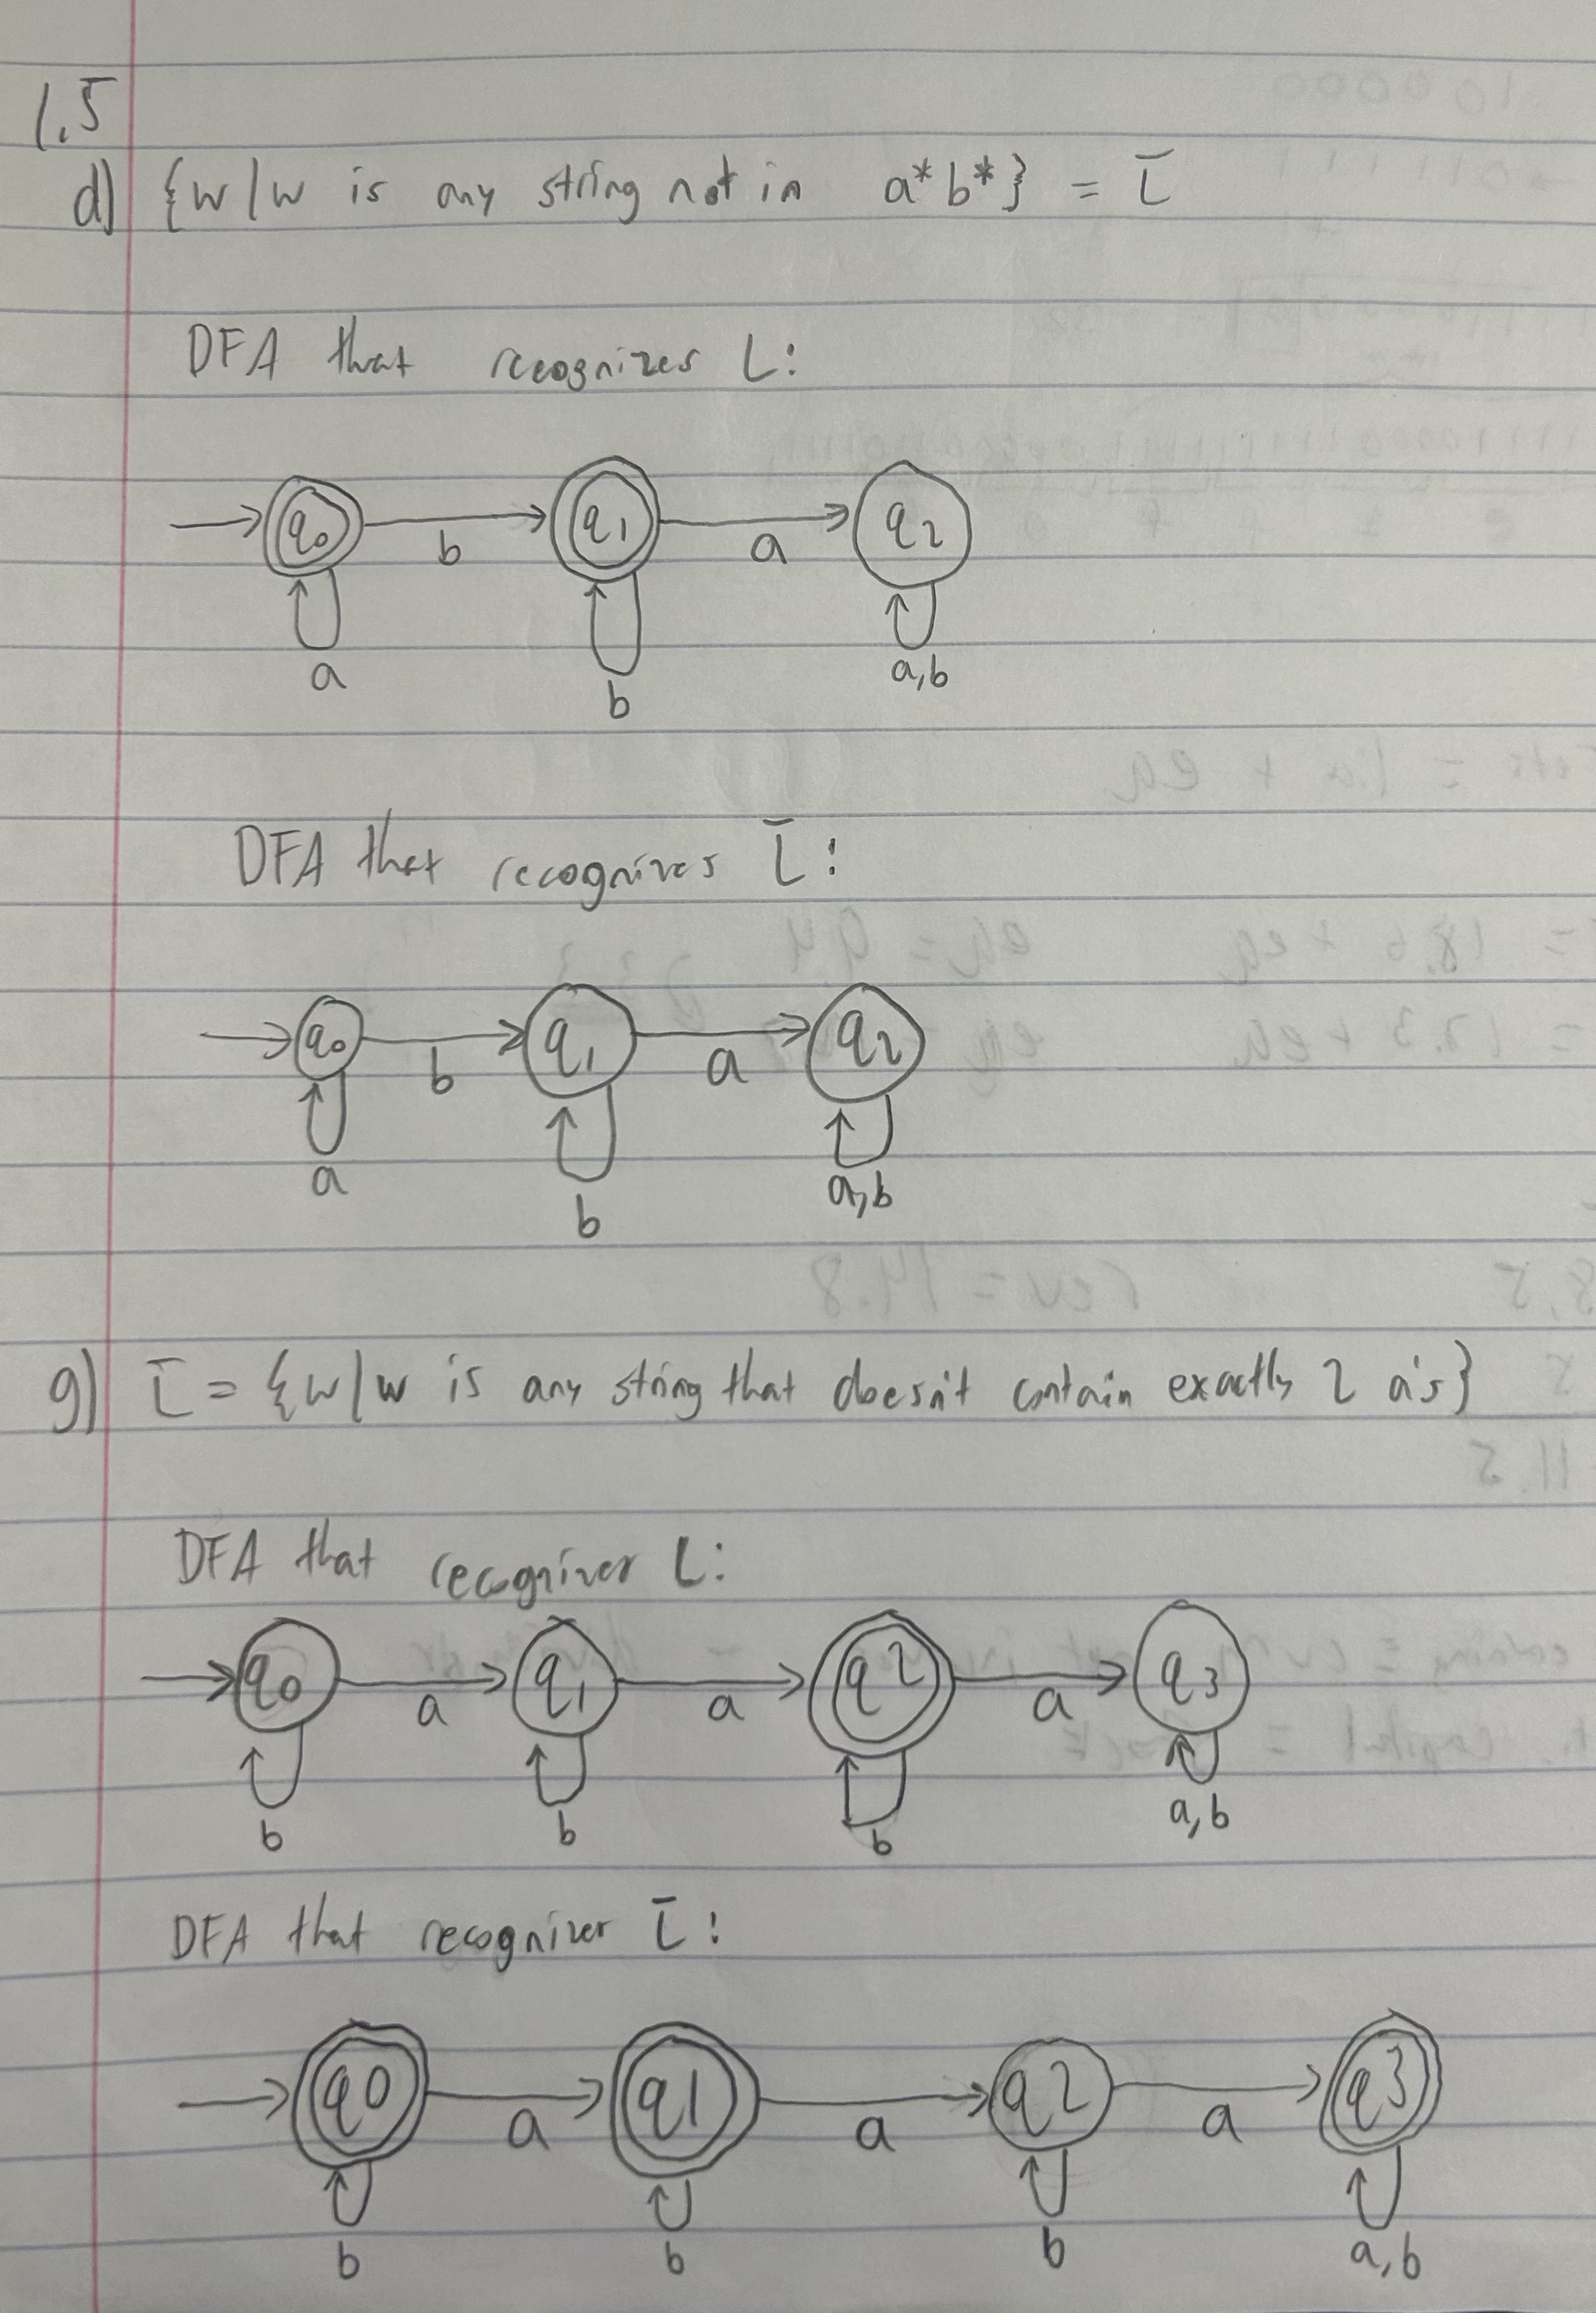 1.5
d) {w/w is any string not in a*b*} = L̅
DFA that recognizes L:
q₀ b q₁ a q₂
a b a,b
DFA that recognizes L̅:
q₀ b q₁ a q₂
a b a,b
g) L̅ = {w/w is any string that doesn't contain exactly 2 a's}
DFA that recognizes L:
q₀ a q₁ a q2 a q₃
b b b a,b
DFA that recognizes L̅:
q0 a q1 a q2 a q3
b b b a,b